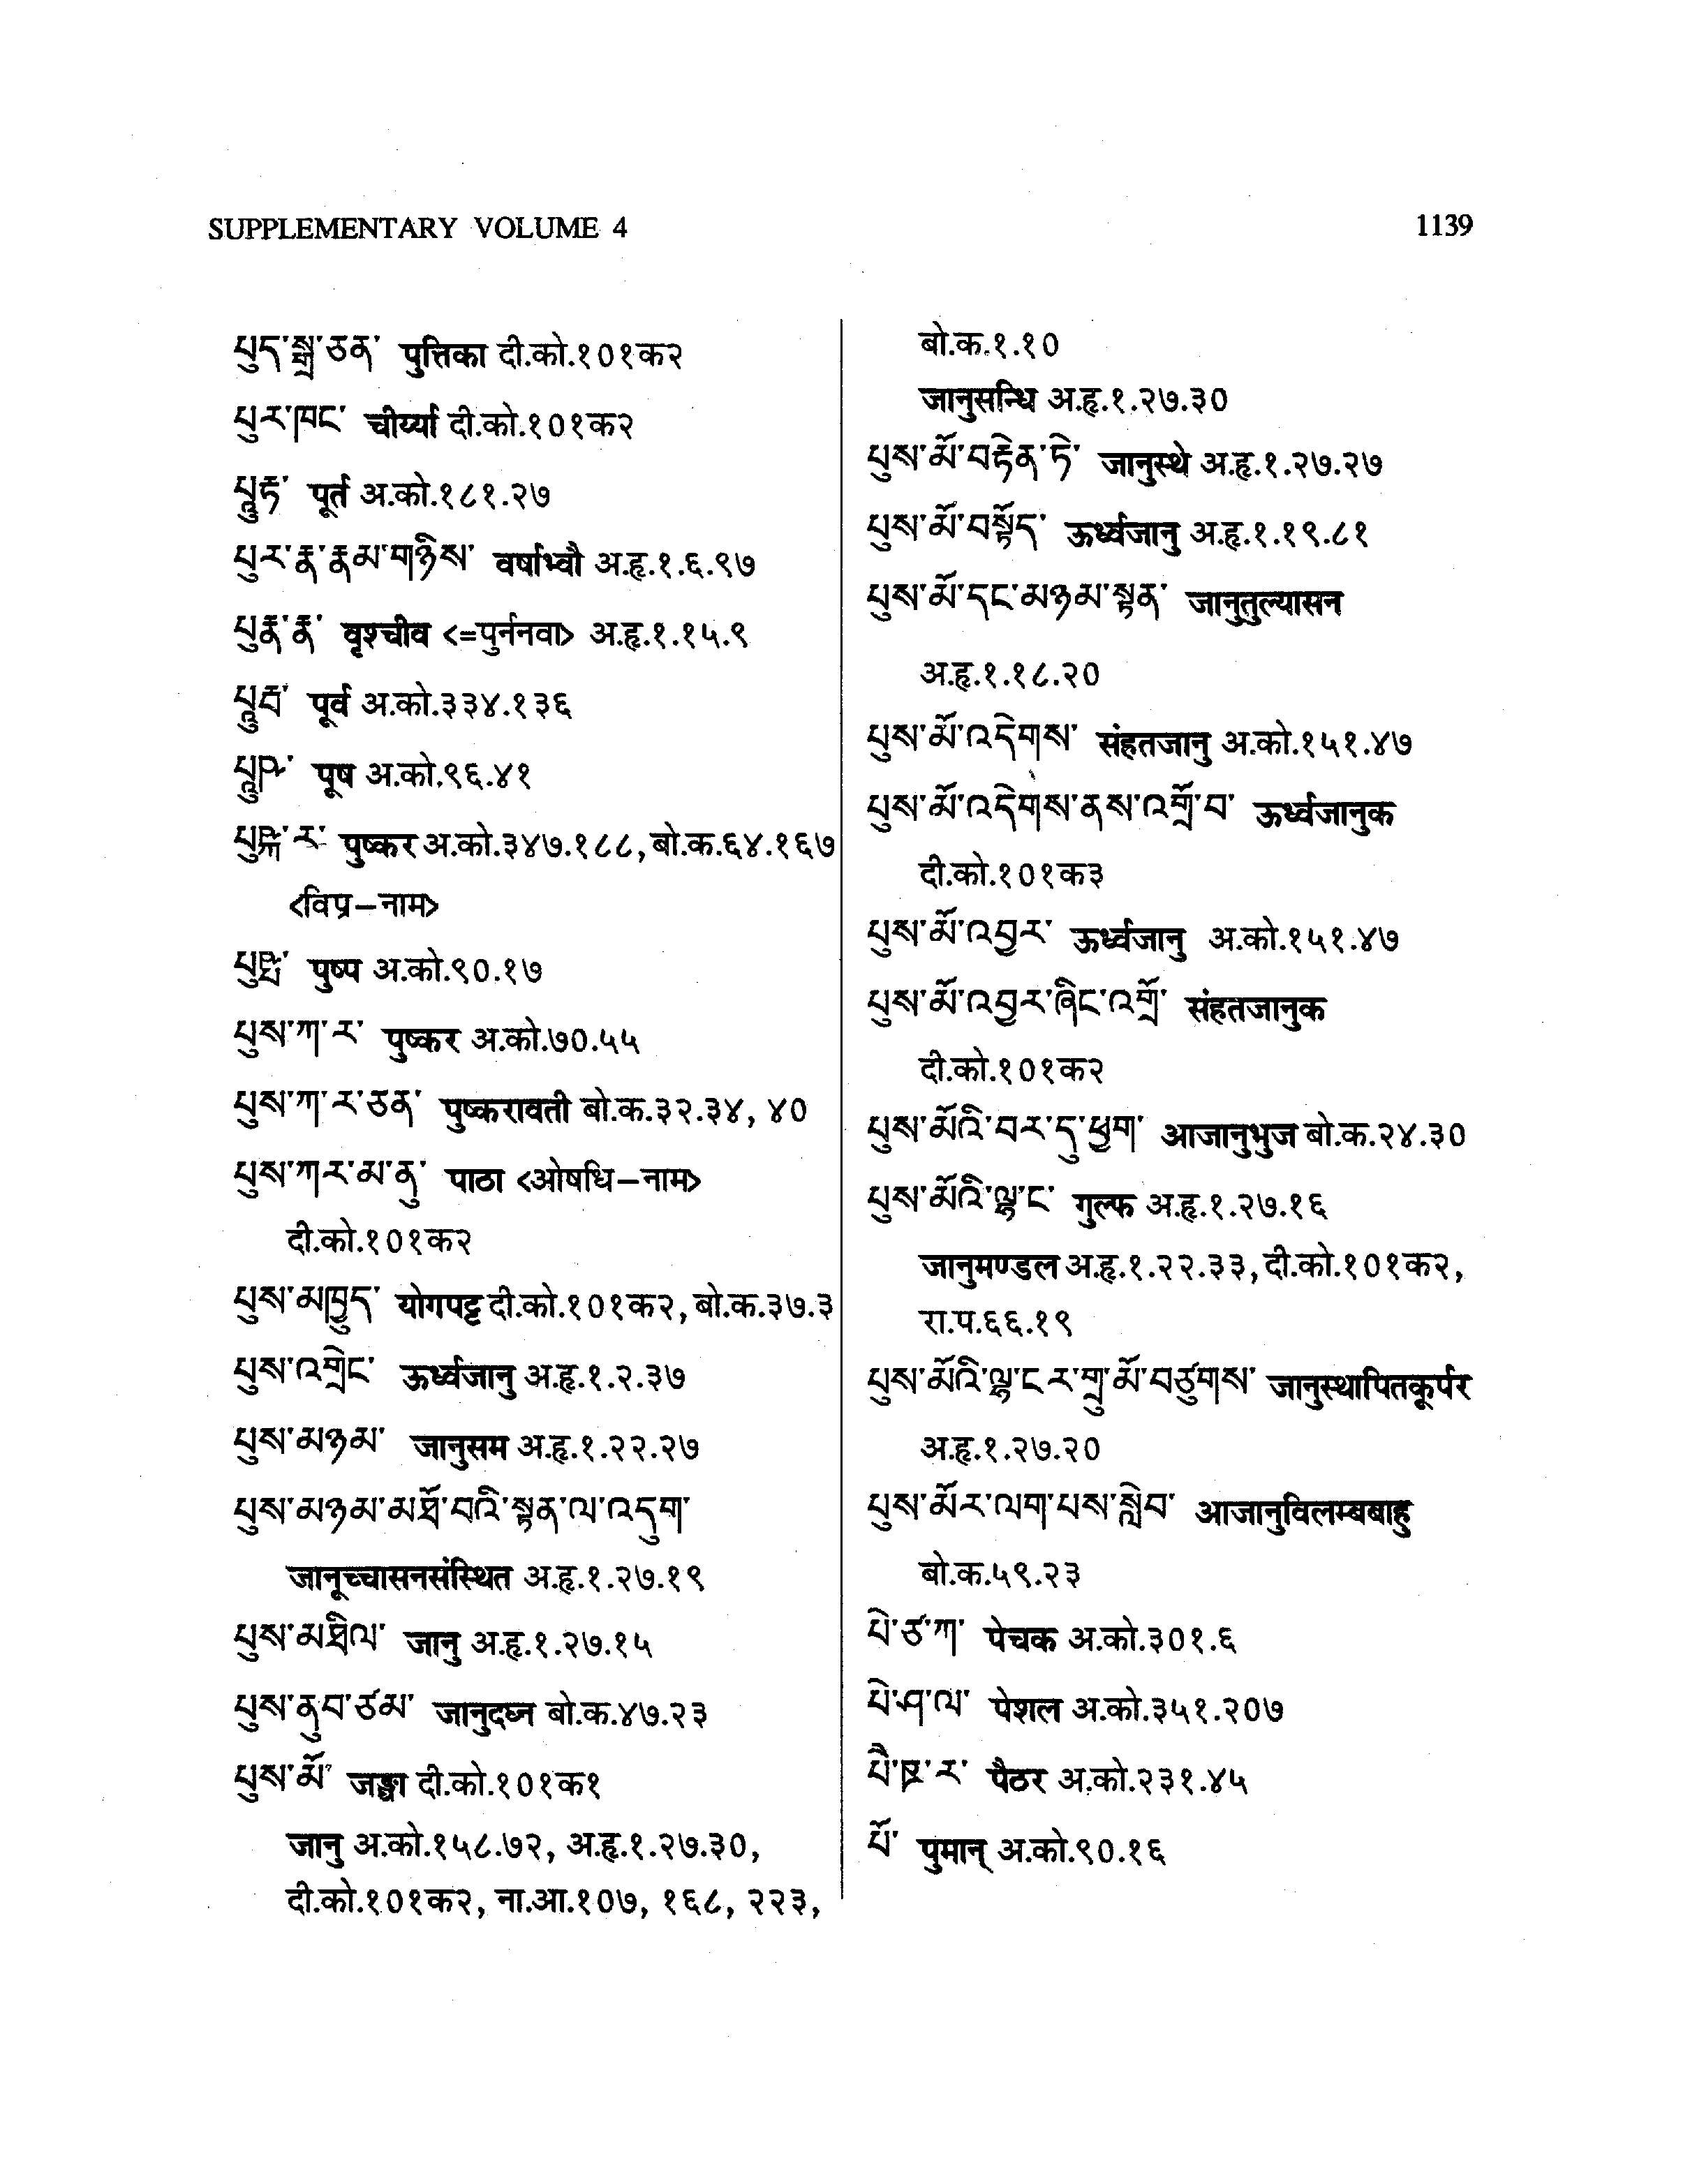 SUPPLEMENTARY VOLUME 4
1139
པུད་སྒྲ་ཅན་ पुत्तिका दी.को.१०१क२
པུར་ཁང་ चीर्य्या दी.को.१०१क२
པཱུརྟ་ पूर्त अ.को.१८१.२७
པུར་རྣ་རྣམ་གཉིས་ वर्षाभ्वौ अ.हृ.१.६.९७
པུརྣ་རྣ་ वृश्चीव <=पुर्ननवा> अ.हृ.१.१५.९
པཱུརྦ་ पूर्व अ.को.३३४.१३६
པཱུཥ་ पूष अ.को.९६.४१
པུཥྐ་ར་ पुष्कर अ.को.३४७.१८८, बो.क.६४.१६७
<विप्र–नाम>
པུཥྤ་ पुष्प अ.को.९०.१७
པུས་ཀ་ར་ पुष्कर अ.को.७०.५५
པུས་ཀ་ར་ཅན་ पुष्करावती बो.क.३२.३४, ४०
པུས་ཀར་མ་ནུ་ पाठा <ओषधि–नाम>
दी.को.१०१क२
པུས་མཁྱུད་ योगपट्ट दी.को.१०१क२, बो.क.३७.३
པུས་འགྲེང་ ऊर्ध्वजानु अ.हृ.१.२.३७
པུས་མཉམ་ जानुसम अ.हृ.१.२२.२७
པུས་མཉམ་མཐོ་བའི་སྟན་ལ་འདུག་
जानूच्चासनसंस्थित अ.हृ.१.२७.१९
པུས་མཐིལ་ जानु अ.हृ.१.२७.१५
པུས་ནུབ་ཙམ་ जानुदघ्न बो.क.४७.२३
པུས་མོ་ जङ्घा दी.को.१०१क१
जानु अ.को.१५८.७२, अ.हृ.१.२७.३०,
दी.को.१०१क२, ना.आ.१०७, १६८, २२३,
बो.क.१.१०
जानुसन्धि अ.हृ.१.२७.३०
པུས་མོ་བརྟེན་ཏེ་ जानुस्थे अ.हृ.१.२७.२७
པུས་མོ་བསྟོད་ ऊर्ध्वजानु अ.हृ.१.१९.८१
པུས་མོ་དང་མཉམ་སྟན་ जानुतुल्यासन
अ.हृ.१.१८.२०
པུས་མོ་འདེགས་ संहतजानु अ.को.१५१.४७
པུས་མོ་འདེགས་ནས་འགྲོ་བ་ ऊर्ध्वजानुक
दी.को.१०१क३
པུས་མོ་འབྱར་ ऊर्ध्वजानु अ.को.१५१.४७
པུས་མོ་འབྱར་ཞིང་འགྲོ་ संहतजानुक
दी.को.१०१क२
པུས་མོའི་བར་དུ་ཕྱག་ आजानुभुज बो.क.२४.३०
པུས་མོའི་ལྷ་ང་ गुल्फ अ.हृ.१.२७.१६
जानुमण्डल अ.हृ.१.२२.३३, दी.को.१०१क२,
रा.प.६६.१९
པུས་མོའི་ལྷ་ང་ར་གྲུ་མོ་བཙུགས་ जानुस्थापितकूर्पर
अ.हृ.१.२७.२०
པུས་མོར་ལག་པས་སླེབ་ आजानुविलम्बबाहु
बो.क.५९.२३
པེ་ཙ་ཀ་ पेचक अ.को.३०१.६
པེ་ཤ་ལ་ पेशल अ.को.३५१.२०७
པཻ་ཋ་ར་ पैठर अ.को.२३१.४५
པོ་ पुमान् अ.को.९०.१६